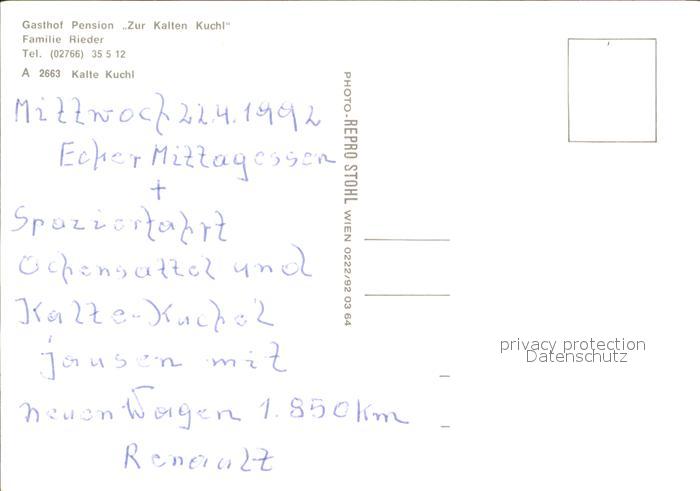 Gasthof Pension „Zur Kalten Kuchl“
Familie Rieder
Tel. (02766) 35 5 12
A 2663 Kalte Kuchl
Mittwoch 22.4.1992
Ecker Mittagessen
+
Spazierfahrt
Ochensattel und
Kalte-Kuchel
jausen mit
neuen Wagen 1.850 Km
Renault
PHOTO-REPRO STOHL WIEN 0222/92 03 64
privacy protection
Datenschutz